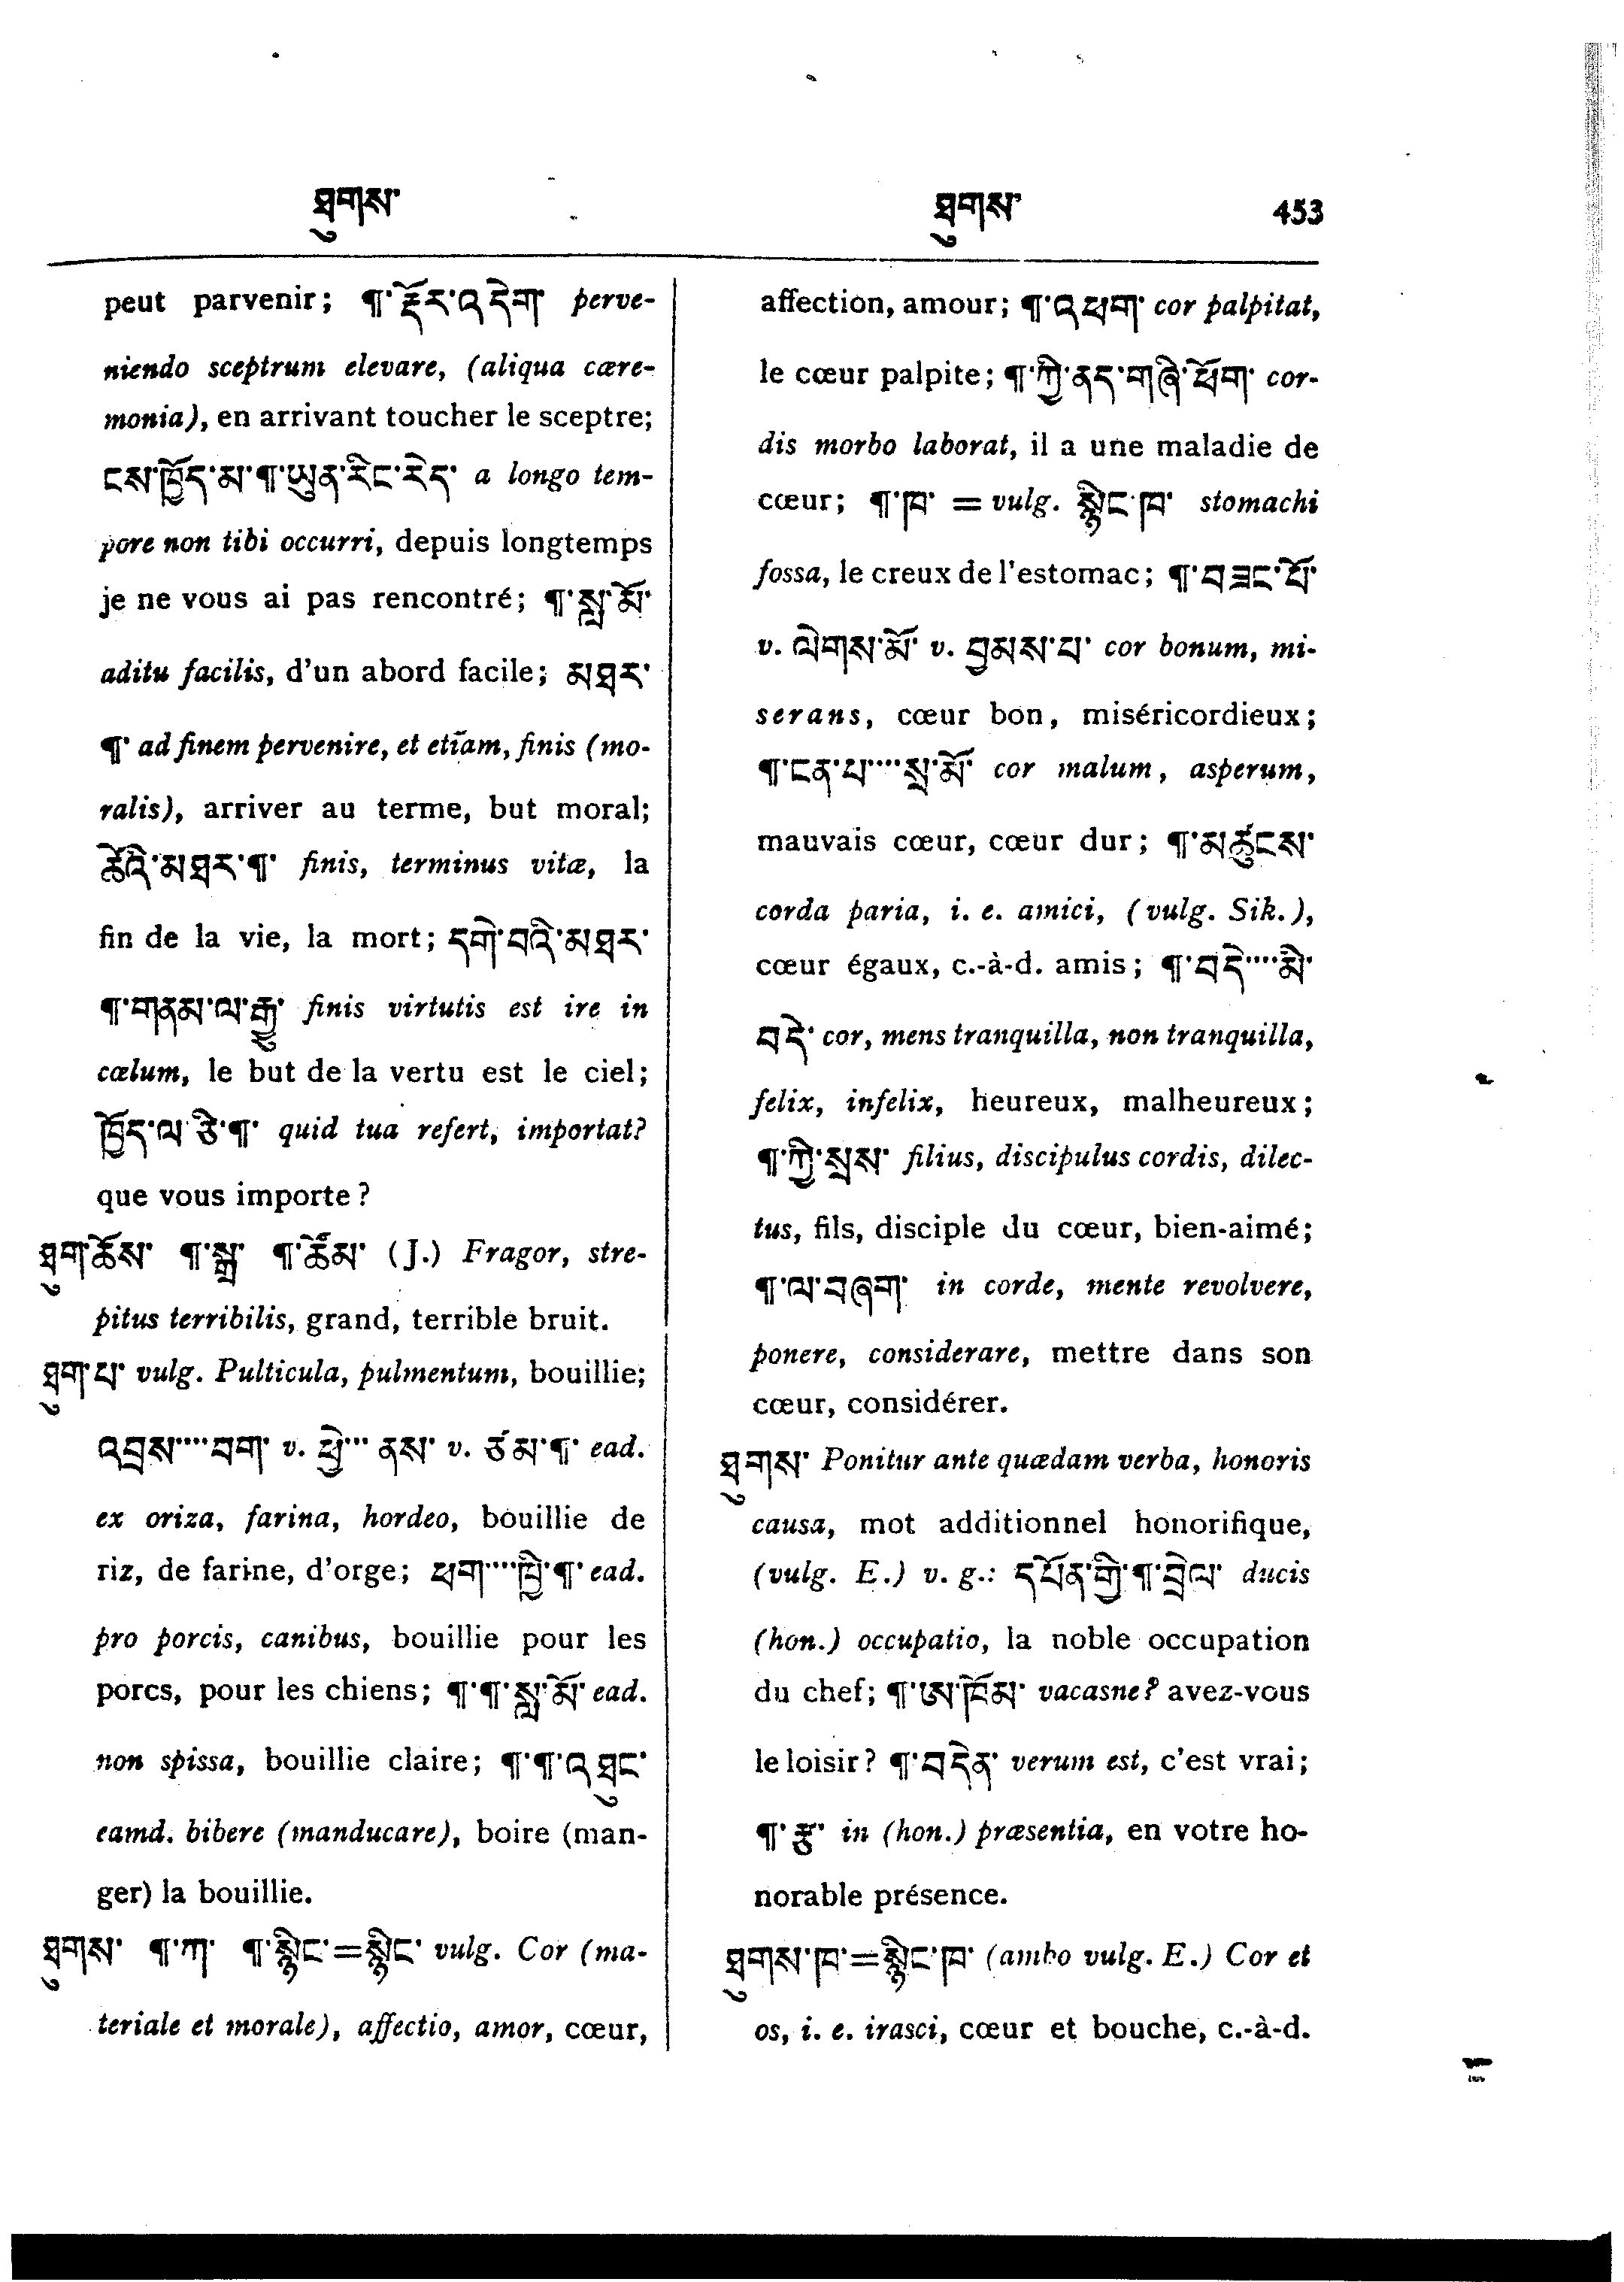 ཐུགས་
ཐུགས་ 453
peut parvenir; ¶་རྡོར་འདེག་ perve-
niendo sceptrum elevare, (aliqua cære-
monia), en arrivant toucher le sceptre;
ངས་ཁྱོད་མ་¶་ཡུན་རིང་རེད་ a longo tem-
pore non tibi occurri, depuis longtemps
je ne vous ai pas rencontré; ¶་སླ་མོ་
aditu facilis, d'un abord facile; མཐར་
¶་ ad finem pervenire, et etiam, finis (mo-
ralis), arriver au terme, but moral;
ཚེའི་མཐར་¶་ finis, terminus vitæ, la
fin de la vie, la mort; དགེ་བའི་མཐར་
¶་གནམ་ལ་རྒྱུ་ finis virtutis est ire in
cælum, le but de la vertu est le ciel;
ཁྱོད་ལ་ཅི་¶་ quid tua refert, importat?
que vous importe?
ཐུག་ཆོས་ ¶་སྒྲ་ ¶་ཆོམ་ (J.) Fragor, stre-
pitus terribilis, grand, terrible bruit.
ཐུག་པ་ vulg. Pulticula, pulmentum, bouillie;
འབྲས་...བག་ v. ཕྱེ་... ནས་ v. ཙམ་¶་ ead.
ex oriza, farina, hordeo, bouillie de
riz, de farine, d'orge; ཕག་...ཁྱི་¶་ ead.
pro porcis, canibus, bouillie pour les
porcs, pour les chiens; ¶་¶་སླ་མོ་ ead.
non spissa, bouillie claire; ¶་¶་འཐུང་
eamd. bibere (manducare), boire (man-
ger) la bouillie.
ཐུགས་ ¶་ཀ་ ¶་སྙིང་=སྙིང་ vulg. Cor (ma-
teriale et morale), affectio, amor, cœur,
affection, amour; ¶་འཕག་ cor palpitat,
le cœur palpite; ¶་ཀྱི་ནད་གཞི་ཕོག་ cor-
dis morbo laborat, il a une maladie de
cœur; ¶་ཁ་ = vulg. སྙིང་ཁ་ stomachi
fossa, le creux de l'estomac; ¶་བཟང་པོ་
v. ལེགས་མོ་ v. བྱམས་པ་ cor bonum, mi-
serans, cœur bon, miséricordieux;
¶་ངན་པ་...སྲ་མོ་ cor malum, asperum,
mauvais cœur, cœur dur; ¶་མཚུངས་
corda paria, i. e. amici, (vulg. Sik.),
cœur égaux, c.-à-d. amis; ¶་བདེ་...མི་
བདེ་ cor, mens tranquilla, non tranquilla,
felix, infelix, heureux, malheureux;
¶་ཀྱི་སྲས་ filius, discipulus cordis, dilec-
tus, fils, disciple du cœur, bien-aimé;
¶་ལ་བཞག་ in corde, mente revolvere,
ponere, considerare, mettre dans son
cœur, considérer.
ཐུགས་ Ponitur ante quædam verba, honoris
causa, mot additionnel honorifique,
(vulg. E.) v. g.: དཔོན་གྱི་¶་བྲེལ་ ducis
(hon.) occupatio, la noble occupation
du chef; ¶་ཨ་ཁོམ་ vacasne? avez-vous
le loisir? ¶་བདེན་ verum est, c'est vrai;
¶་རྩ་ in (hon.) præsentia, en votre ho-
norable présence.
ཐུགས་ཁ་=སྙིང་ཁ་ (ambo vulg. E.) Cor et
os, i. e. irasci, cœur et bouche, c.-à-d.